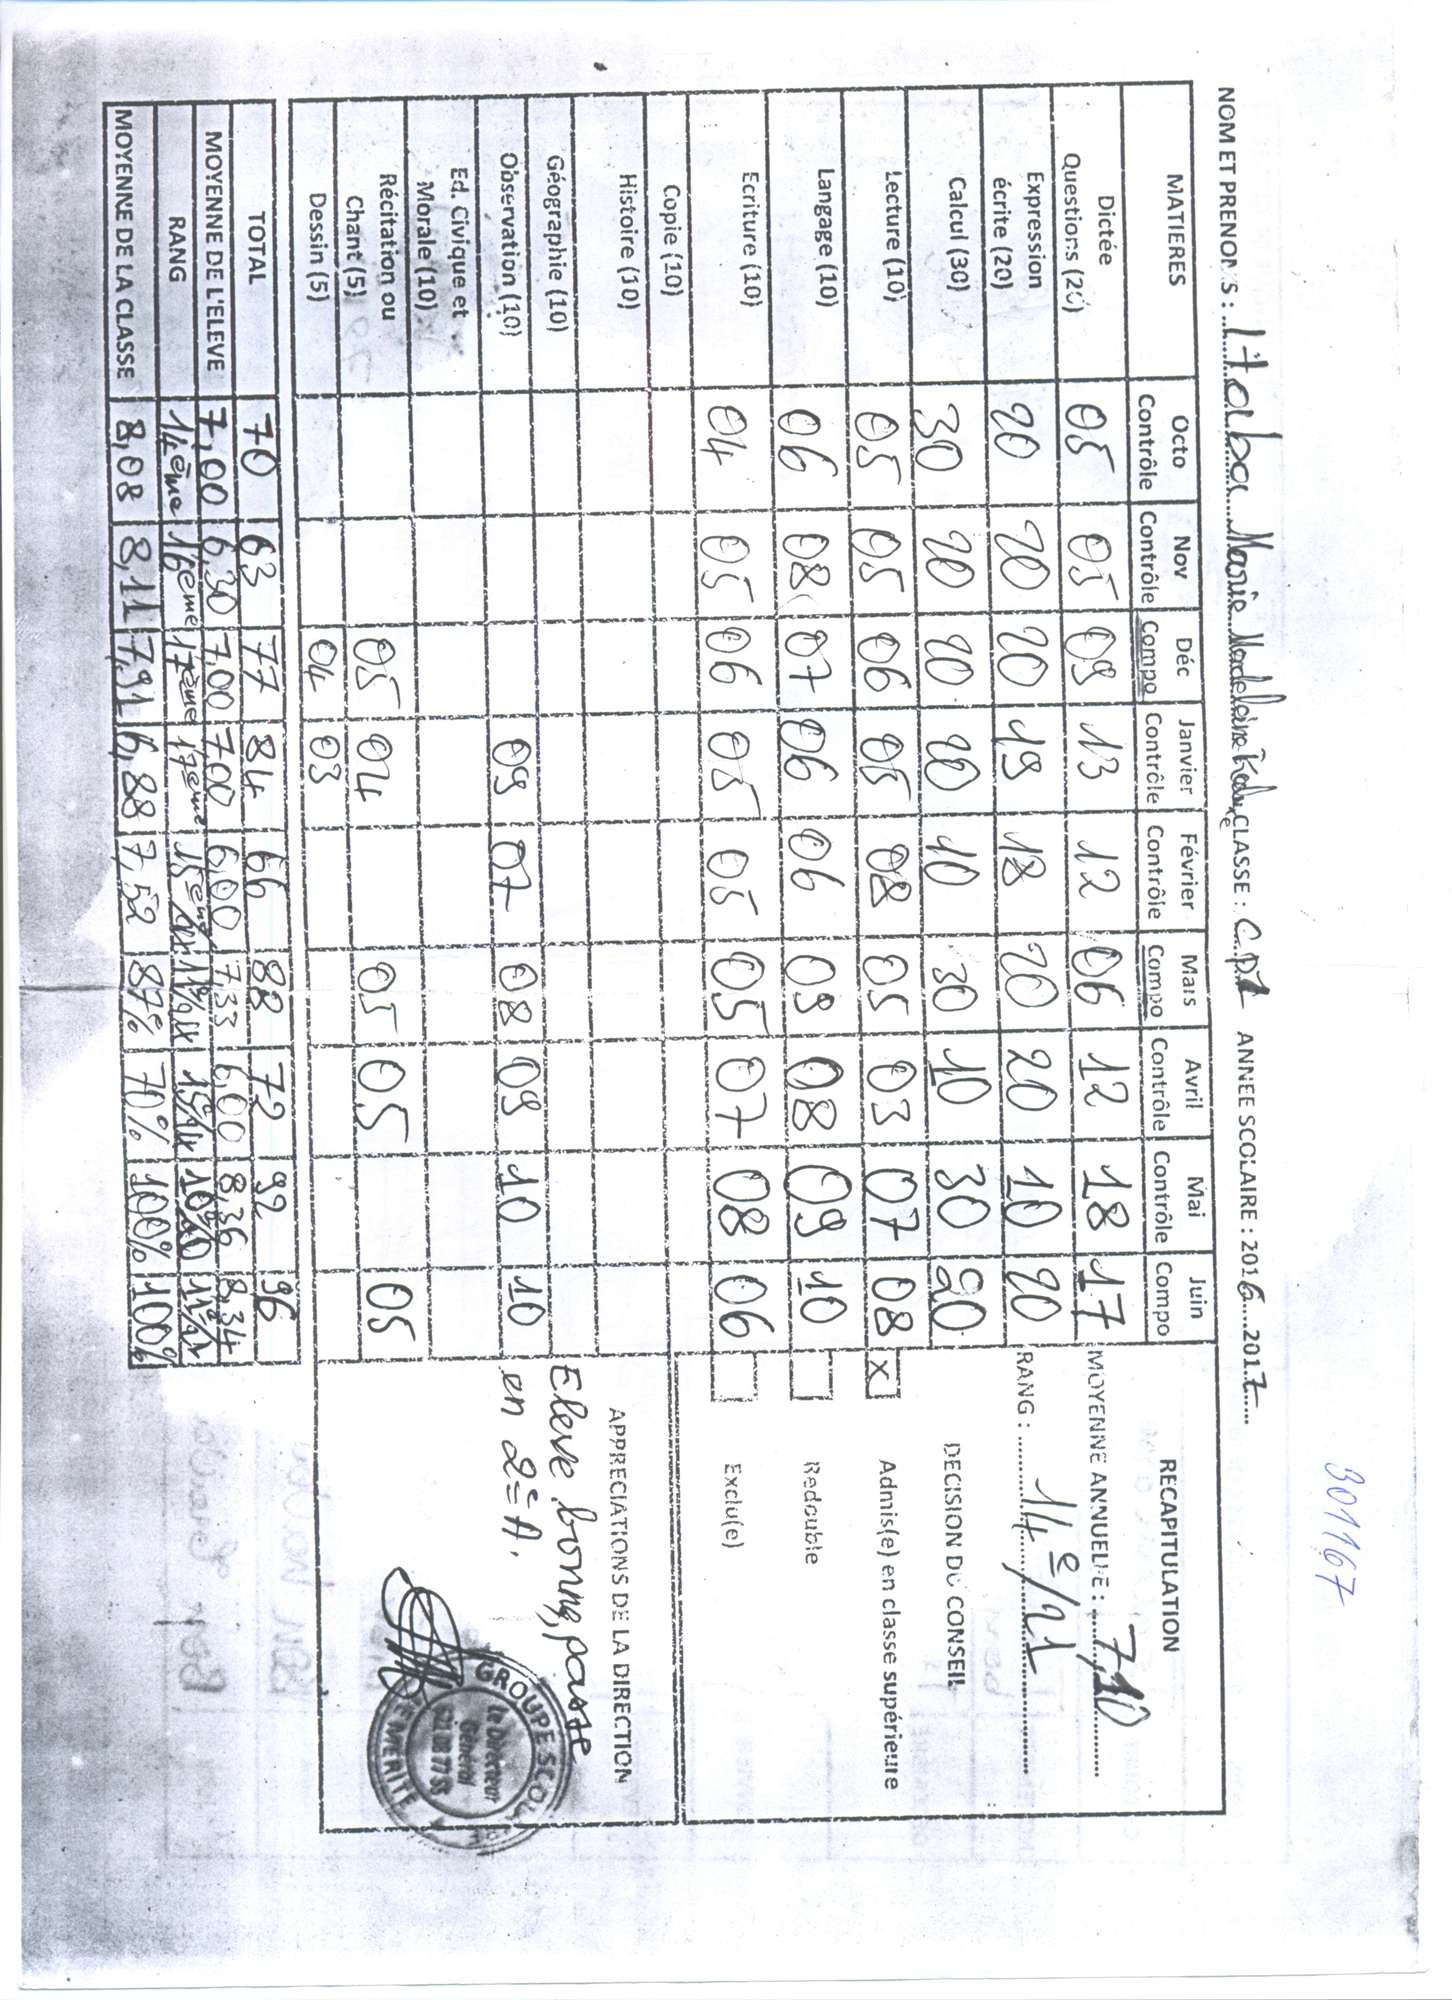 301167
NOM ET PRENOMS : Haba Marie Madeleine CLASSE : C.P1 ANNEE SCOLAIRE : 2016 2017
MATIERES Octo Contrôle Nov Contrôle Déc Compo Janvier Contrôle Février Contrôle Mars Compo Avril Contrôle Mai Contrôle Juin Compo RECAPITULATION
Dictée Questions (20) 05 05 09 13 12 06 12 18 17 MOYENNE ANNUELLE : 7,10
Expression écrite (20) 20 20 20 19 18 20 20 10 20 RANG : 14e/21
Calcul (30) 30 20 20 20 10 30 10 30 20 DECISION DU CONSEIL
Lecture (10) 05 05 06 05 08 05 03 07 08 X Admis(e) en classe supérieure
Langage (10) 06 08 07 06 06 09 08 09 10 Redouble
Ecriture (10) 04 05 06 05 05 05 07 08 06 Exclu(e)
Copie (10)
Histoire (10) APPRECIATIONS DE LA DIRECTION
Géographie (10) Eleve bonne, passe
Observation (10) 09 07 08 09 10 10 en 2e A.
Ed. Civique et Morale (10)
Récitation ou Chant (5) 05 04 05 05 05
Dessin (5) 04 03
GROUPE SCOL
Le Directeur
Général
MERITE
TOTAL 70 63 77 84 66 88 72 92 96
MOYENNE DE L'ELEVE 7,00 6,30 7,00 7,00 6,00 7,33 6,00 8,36 8,34
RANG 14ème 16ème 17ème 17ème 15ème
MOYENNE DE LA CLASSE 8,08 8,11 7,91 6,88 7,52 87% 70% 100% 100%